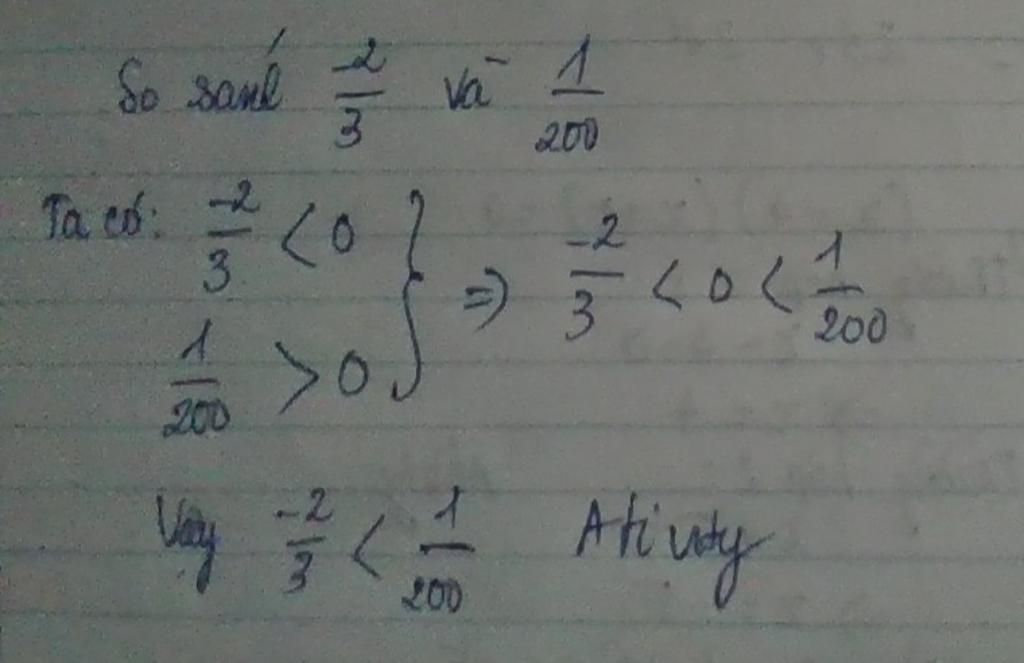 So sánh -2/3 và 1/200
Ta có: -2/3 < 0
1/200 > 0 } => -2/3 < 0 < 1/200
Vậy -2/3 < 1/200